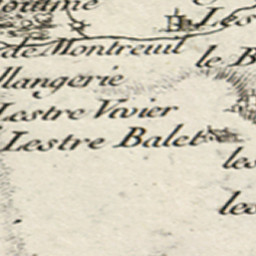 Les
de Montreuil
le B
llangerie
Lestre Vivier
Lestre Balet
les
les